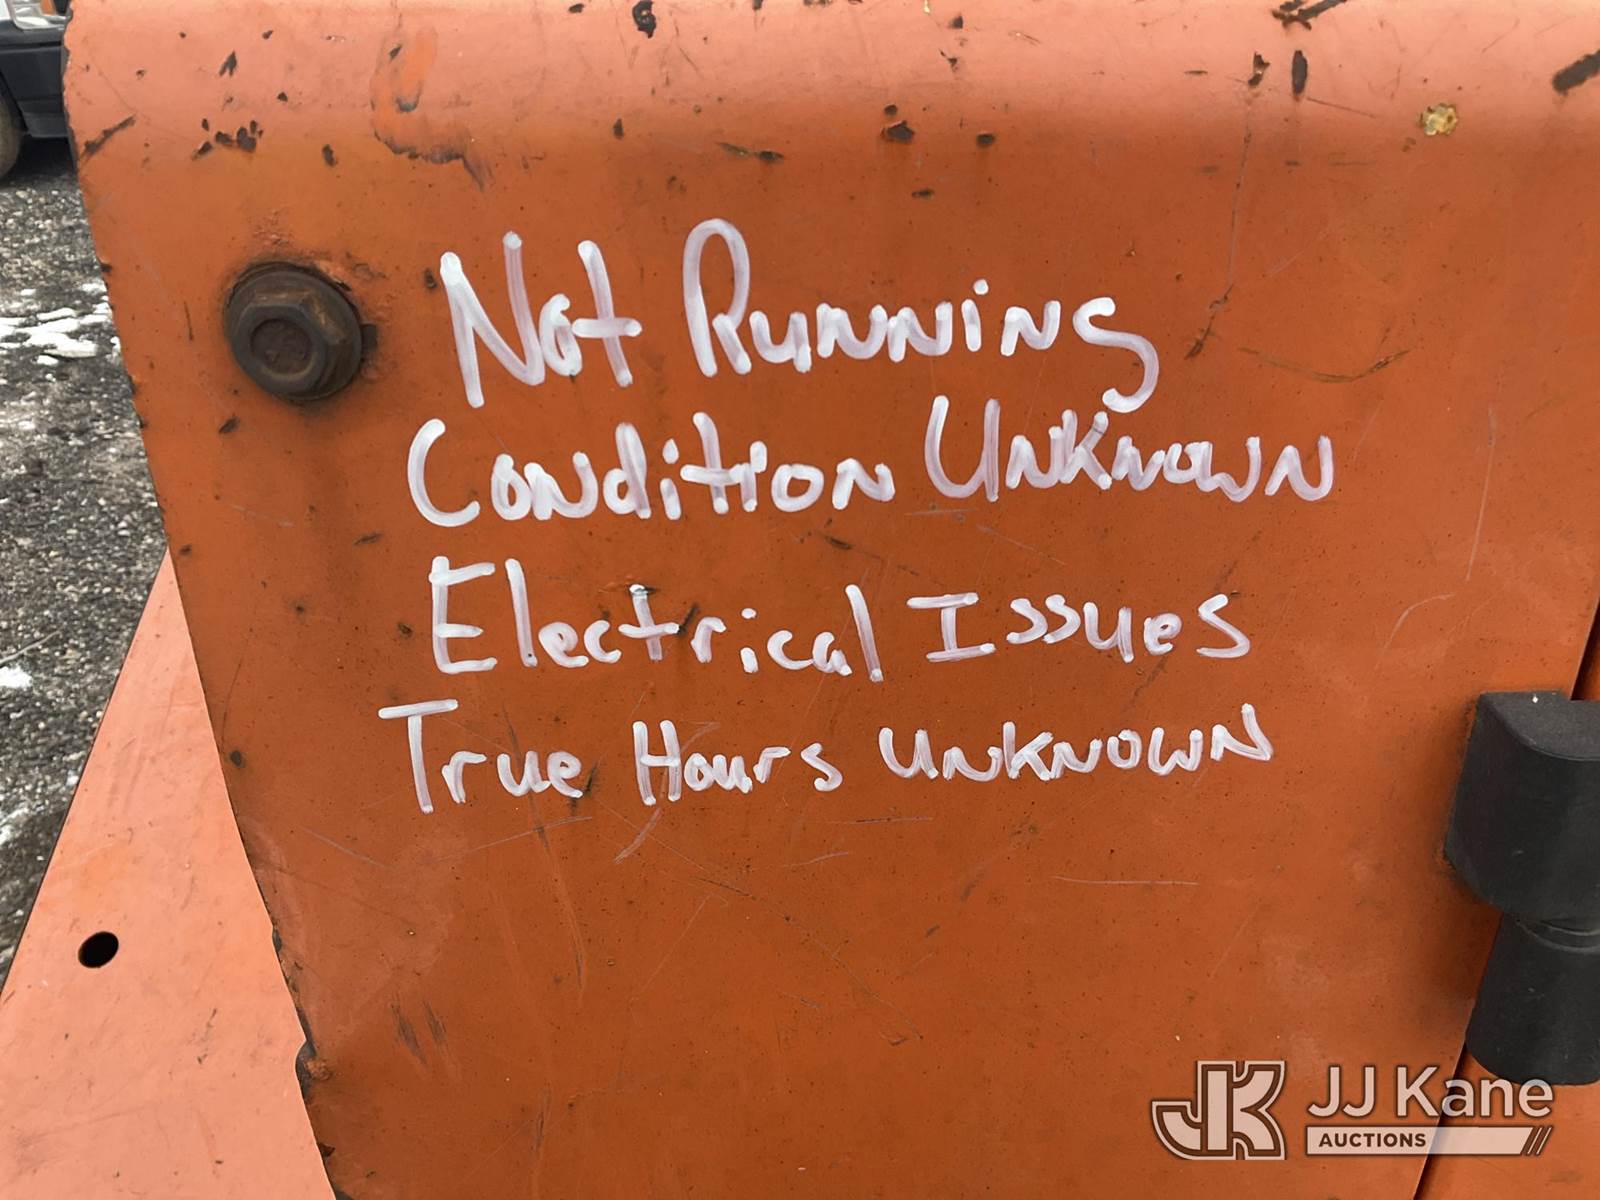 Not Running
Condition Unknown
Electrical Issues
True Hours Unknown
JK JJ Kane
AUCTIONS